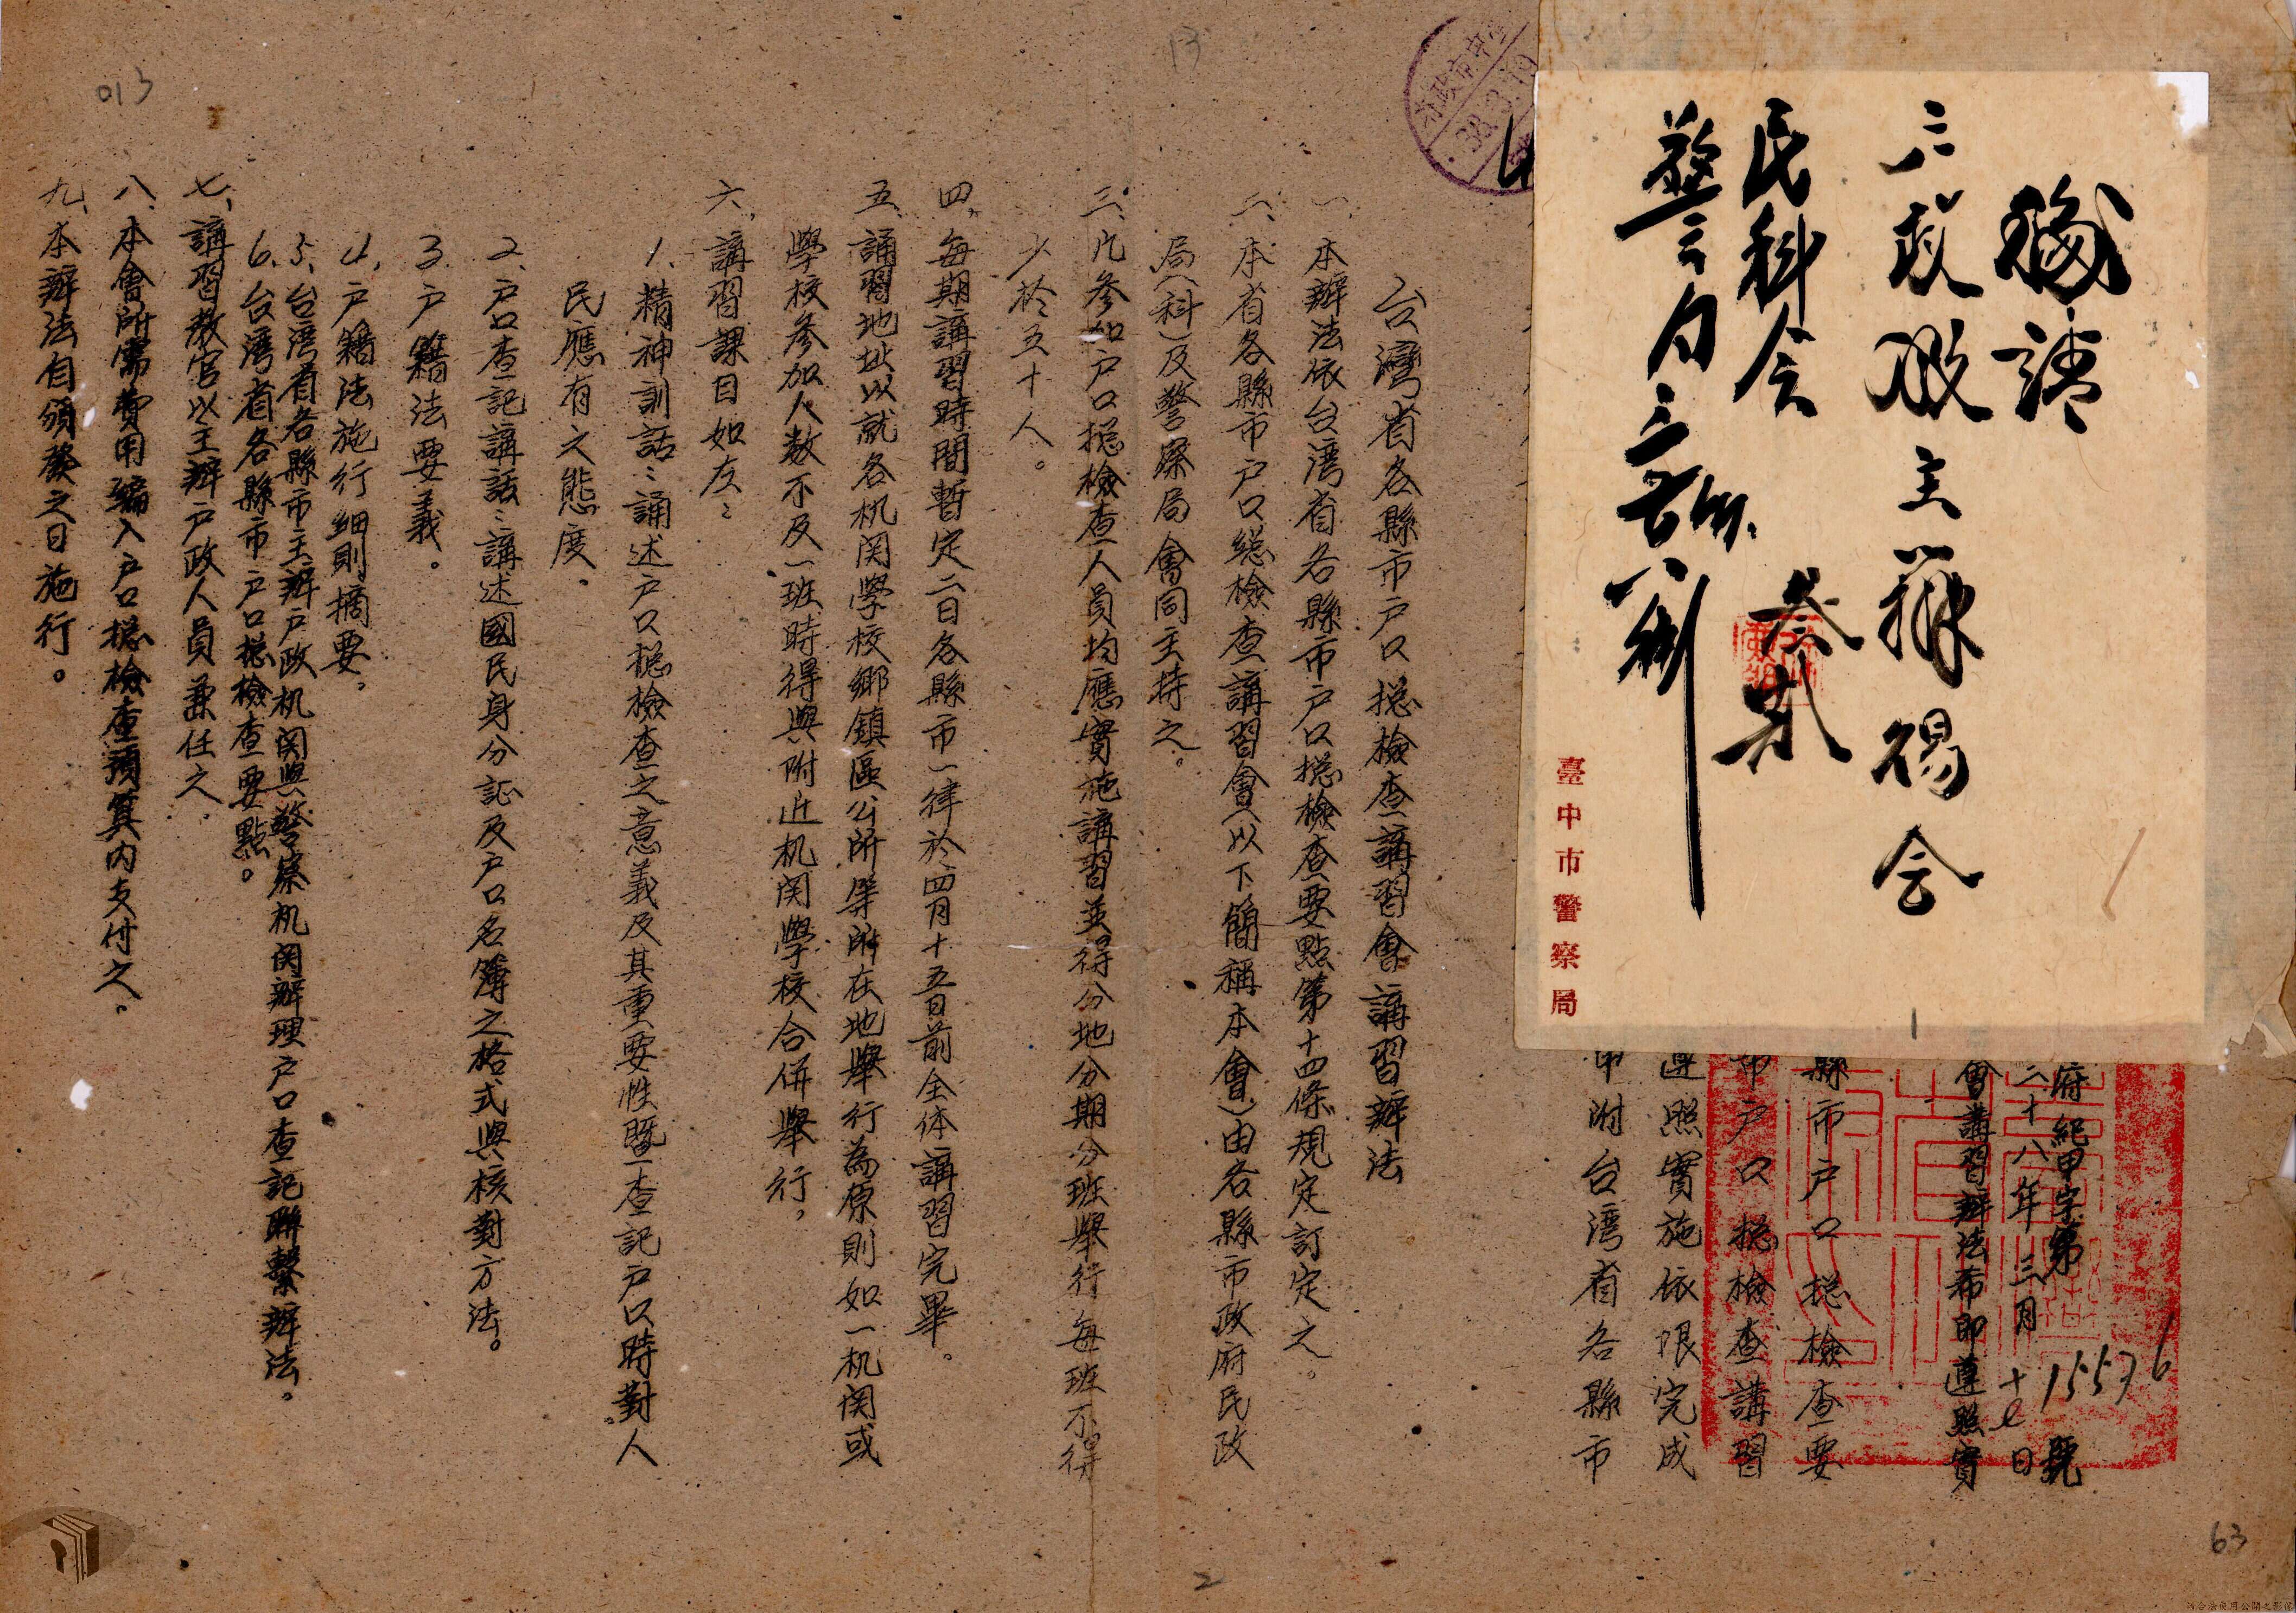 職請
民科会
臺中市警察局
府紀甲字第 15536 號
二十八年三月十七日
會講習辦法希即遵照實
縣市户口揔檢查要
市户口揔檢查講習
遵照實施依限完成
附台湾省各縣市
台湾省各縣市户口揔檢查講習會講習辦法
一、本辦法依台湾省各縣市户口揔檢查要點第十四條規定訂定之。
二、本省各縣市户口總檢查講習會（以下簡稱本會）由各縣市政府民政
局（科）及警察局會同主持之。
三、凡參加户口揔檢查人員均應實施講習並得分地分期分班舉行每班不得
少於五十人。
四、每期講習時間暫定二日各縣市一律於四月十五日前全体講習完畢。
五、講習地址以就各机関學校鄉鎮區公所等所在地舉行為原則如一机関或
學校參加人数不及一班時得與附近机関學校合併舉行。
六、講習課目如左：
1、精神訓話：講述户口揔檢查之意義及其重要性暨查記户口時對人
民應有之態度。
2、户口查記講話：講述國民身分証及户口名簿之格式與核對方法。
3、户籍法要義。
4、户籍法施行细則摘要。
5、台湾省各縣市主辦户政机関與警察机関辦理户口查記聯繫辦法。
6、台湾省各縣市户口揔檢查要點。
七、講習教官以主辦户政人員兼任之。
八、本會所需費用編入户口揔檢查預算内支付之。
九、本辦法自頒發之日施行。
013
13
2
63
請合法使用公開之影像